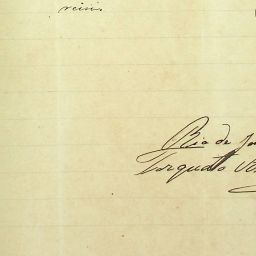 reis.
Rio de Ja
Torquato